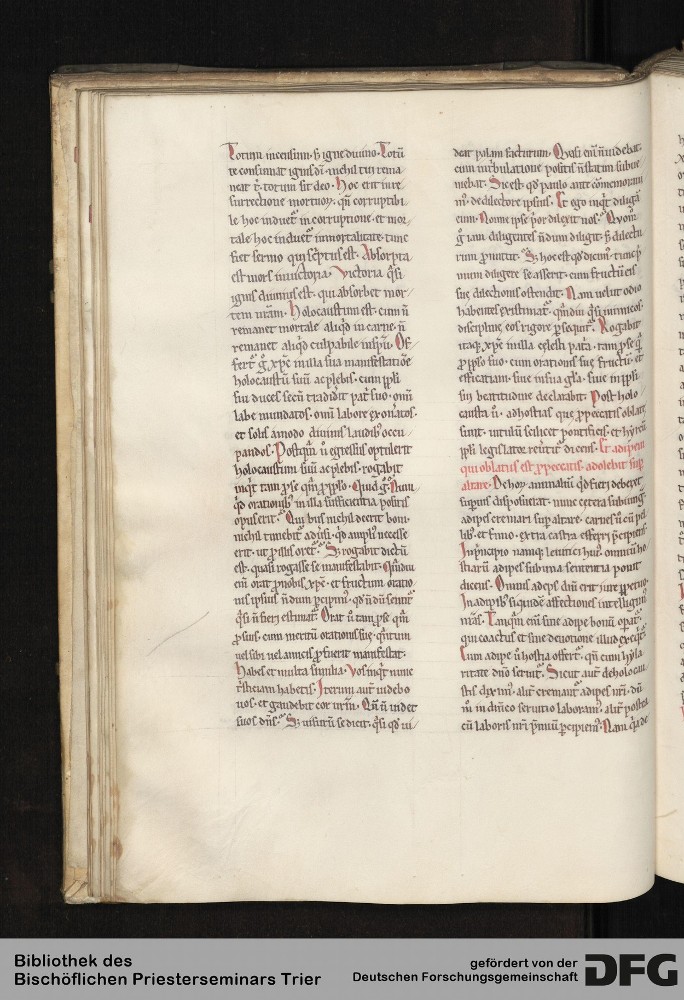 Totum incensum. s; igne diuino. Totū
te consumat ignis di. nichil tui rema
neat t̄. totum sit deo. Hoc erit in re
surrectione mortuoꝝ. qn̄ corruptibi
le hoc induet in corruptione. et mor
tale hoc induet immortalitatē. tunc
fiet sermo qui sc̄ptus est. Absorpta
est mors in uictoria. Victoria q̄si
ignis diuinus est. qui absorbet mor
tem nr̄am. Holocaustum est. cum n̄
remanet mortale aliqd in carne. n̄
remanet aliqd culpabile in sp̄u. Of
fert g xp̄c in illa sua manifestatiōe
holocaustū suū ac plebis. cum pp̄li
sui duces secū tradidit patri suo. omī
labe mundatos. omī labore exonatos.
et solis amodo diuinis laudibꝰ occu
pandos. Postqm̄ u egressus optulerit
holocaustum suū ac plebis. rogabit
inqt tam p se qm̄ p pp̄lo. Quid g
qd orationibꝰ in illa sufficientia positis
opus erit. Quibus nichil deerit boni.
nichil timebit aduersi. qd ampliꝰ necesse
erit. ut p illis oret. S; rogabit dictū
est. quasi rogasse se manifestabit. Qm̄diu
eni orat p nobis xp̄c. et fructum oratio
nis ipsius n̄dum pcipimꝰ. qd n̄dū sentitʳ
q̄si n̄ fieri estimatʳ. Orat u tam p se qm̄
p suis. cum meritū orationis sue. qm̄tum
uel sibi uel amicis pfuerit manifestat.
Habes et multa similia. Vos inqt nunc
tristiciam habetis. Iterum aut uidebo
uos. et gaudebit cor urm̄. Qn̄ n̄ uidet
suos dn̄s. S; uisurū se dicit. q̄si qd ui
deat palam facturum. Quasi eni n̄ uidebat.
cum in tribulatione positis n̄ statim subue
niebat. Sic est qd paulo ante cōmemoraui
mꝰ. de dilectore ipsius. Et ego inqt diligā
eum. Nonne ipse prior dilexit nos. Quom
g iam diligentes n̄dum diligit. s; dilectu
rum pmittit. S; hoc est qd diximꝰ. tunc p
mum diligere se asserit. cum fructū eis
sue dilectionis ostendit. Nam uelut odio
habentes existimat. qm̄diu q̄si inimicos
discipline eos rigore psequitʳ. Rogabit
itaq; xp̄c in illa celesti patria. tam p se q
p pp̄lo suo. cum orationis sue fructū. et
efficatiam. siue in sua gl̄a. siue in pp̄li
sui beatitudine declarabit. Post holo
causta u. ad hostias que p peccatis oblate
sunt. uitulū scilicet pontificis. et hyrcū
pp̄li legislator reuertitʳ dicens. Et adipem
qui oblatus est p peccatis. adolebit sup
altare. De hoꝝ animaliū qd fieri deberet
supius disposuerat. nunc cetera subiungit.
adipes cremari sup altare. carnes u cū pel
libꝰ. et fimo. extra castra efferri pcipiens.
In principio namq; leuitici huiꝰ. omniū ho
stiarū adipes sub una sententia ponit
dicens. Omnis adeps dn̄i erit iure ppetuo.
In adipibꝰ siquidē affectiones intelligimꝰ
nr̄as. Tamqm̄ eni sine adipe bonū operatʳ.
qui coactus et sine deuotione illud exeqtʳ.
Cum adipe u hostia offertʳ. qn̄ cum hyla
ritate dn̄o seruitʳ. Sicut aut de holocau
stis diximꝰ. aut cremantʳ adipes nr̄i. dū
nī in dn̄ico seruitio laboramꝰ. aut postea
cū laboris nr̄i pmiū pcipiemꝰ. Nam qa de
Bibliothek des
Bischöflichen Priesterseminars Trier
gefördert von der
Deutschen Forschungsgemeinschaft
DFG